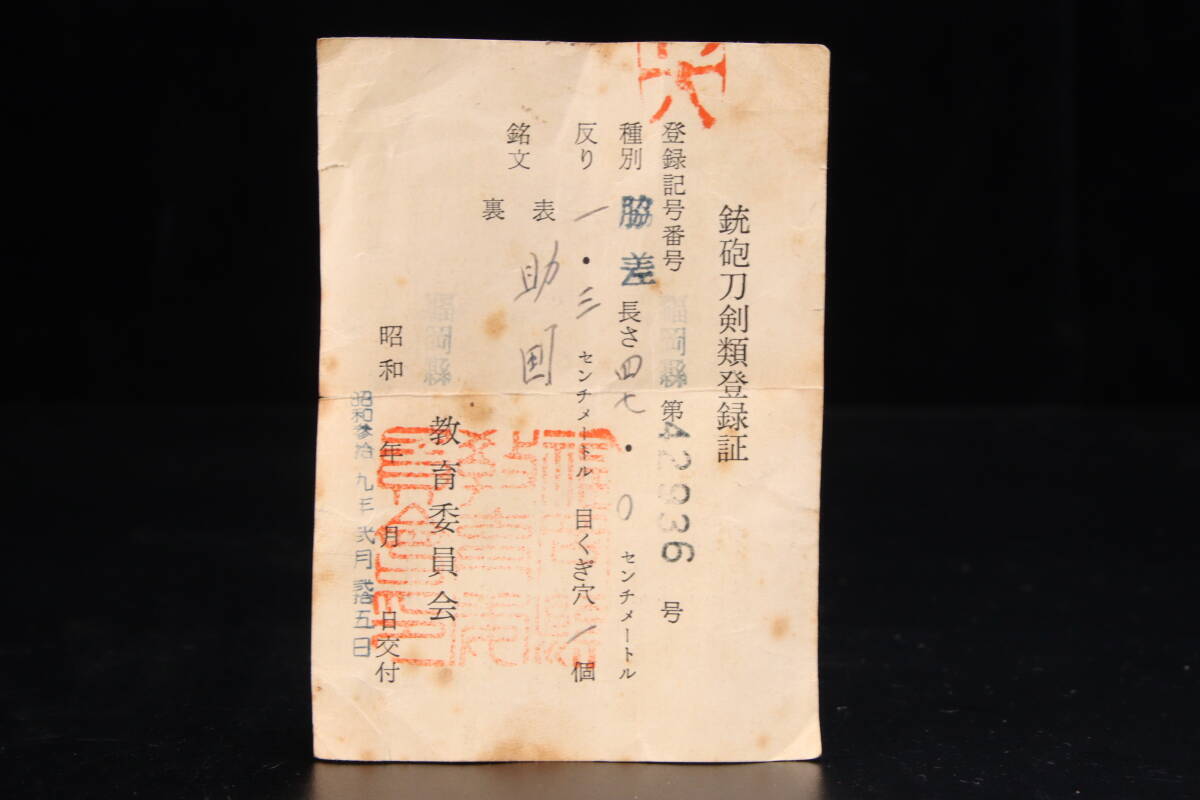 銃砲刀剣類登録証
登録記号番号 福岡縣 第42936号
種別 脇差 長さ 四七・〇 センチメートル
反り 一・三 センチメートル 目くぎ穴 一 個
銘文 表 助国
裏
福岡縣 教育委員会
昭和 年 月 日交付
昭和参拾九年弐月弐拾五日
福岡縣教育委員会印